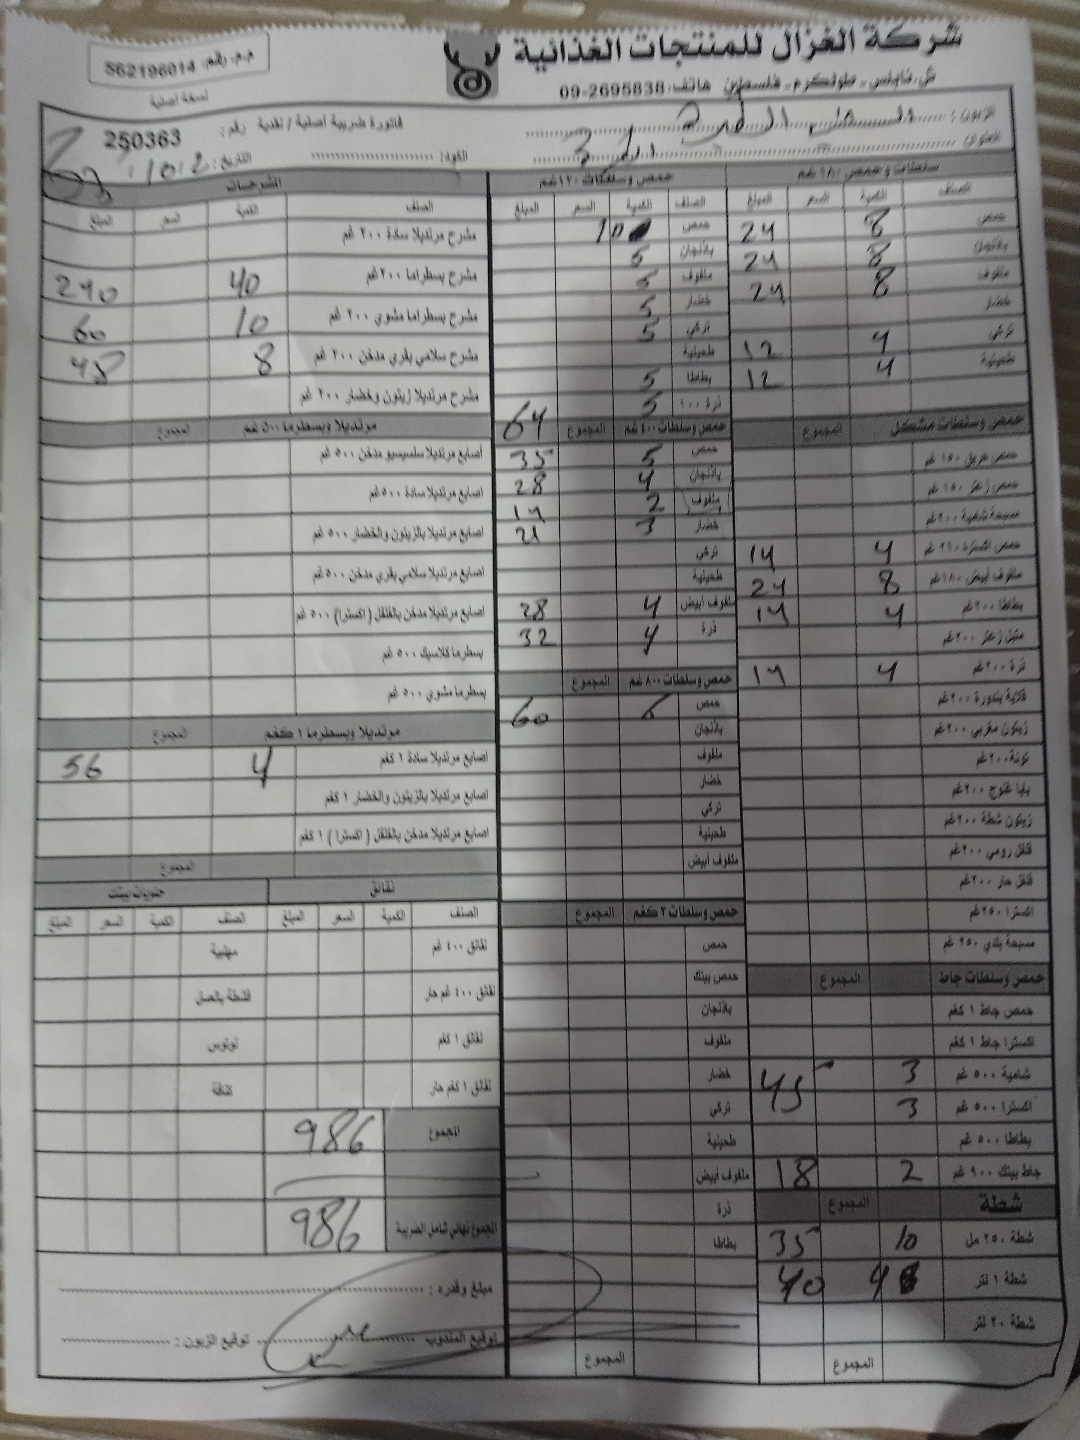 شركة الغزال للمنتجات الغذائية
ش. نابلس - طولكرم - فلسطين هاتف: 09-2695838
م.م. رقم: 562196014
نسخة أصلية
الزبون:
العنوان:
فاتورة ضريبية اصلية / نقدية رقم: 250363
الكود: التاريخ:
سلطات وحمص ١٨٠ غم
الصنف الكمية السعر المبلغ
حمص 8 24
باذنجان 8 24
ملفوف 8 24
خضار
تركي 4 12
طحينية 4 12
حمص وسلطات مشكل المجموع
حمص حريق ١٥٠ غم
حمص زعتر ١٥٠ غم
مسبحة شامية ٢٠٠ غم
حمص اكسترا ٢١٠ غم 4 14
ملفوف ابيض ١٨٠ غم 8 24
بطاطا ٢٠٠ غم 4 14
متبل زعتر ٢٠٠ غم
ذرة ٢٠٠ غم 4 14
قلاية بندورة ٢٠٠ غم
زيتون مغربي ٢٠٠ غم
تونة ٢٠٠ غم
بابا غنوج ٢٠٠ غم
زيتون شطة ٢٠٠ غم
فلفل رومي ٢٠٠ غم
فلفل حار ٢٠٠ غم
اكسترا ٢٥٠ غم
مسبحة بلدي ٢٥٠ غم
حمص وسلطات جاط المجموع
حمص جاط ١ كغم
اكسترا جاط ١ كغم
شامية ٥٠٠ غم 3 45
اكسترا ٥٠٠ غم 3
بطاطا ٥٠٠ غم
جاط بيتك ٩٠٠ غم 2 18
شطة المجموع
شطة ٢٥٠ مل 10 35
شطة ١ لتر 4 40
شطة ٢٠ لتر
المجموع
حمص وسلطات ١٢٠ غم
الصنف الكمية السعر المبلغ
حمص 10
باذنجان 5
ملفوف 5
خضار 5
تركي 5
طحينية
بطاطا 5
ذرة ١٠٠ 5 64
حمص وسلطات ٤٠٠ غم المجموع
حمص 5 35
باذنجان 4 28
ملفوف 2 14
خضار 3 21
تركي
طحينية
ملفوف أبيض 4 28
ذرة 4 32
حمص وسلطات ٨٠٠ غم المجموع
حمص 60
باذنجان
ملفوف
خضار
تركي
طحينية
ملفوف أبيض
حمص وسلطات ٢ كغم المجموع
حمص
حمص بيتك
باذنجان
ملفوف
خضار
تركي
طحينية
ملفوف أبيض
ذرة
بطاطا
المجموع
الشرحات
الصنف الكمية السعر المبلغ
مشرح مرتديلا سادة ٢٠٠ غم
مشرح بسطراما ٢٠٠ غم 40 240
مشرح بسطراما مشوي ٢٠٠ غم 10 60
مشرح سلامي بقري مدخن ٢٠٠ غم 8 48
مشرح مرتديلا زيتون وخضار ٢٠٠ غم
مرتديلا وبسطرما ٥٠٠ غم المجموع
اصابع مرتديلا سلسيسيو مدخن ٥٠٠ غم
اصابع مرتديلا سادة ٥٠٠ غم
اصابع مرتديلا بالزيتون والخضار ٥٠٠ غم
اصابع مرتديلا سلامي بقري مدخن ٥٠٠ غم
اصابع مرتديلا مدخن بالفلفل ( اكسترا ) ٥٠٠ غم
بسطرما كلاسيك ٥٠٠ غم
بسطرما مشوي ٥٠٠ غم
مرتديلا وبسطرما ١ كغم المجموع
اصابع مرتديلا سادة ١ كغم 4 56
اصابع مرتديلا بالزيتون والخضار ١ كغم
اصابع مرتديلا مدخن بالفلفل ( اكسترا ) ١ كغم
المجموع
نقانق حلويات بيتك
الصنف الكمية السعر المبلغ الصنف الكمية السعر المبلغ
نقانق ٤٠٠ غم مهلبية
نقانق ٤٠٠ غم حار قشطة بالعسل
نقانق ١ كغم لوتوس
نقانق ١ كغم حار كنافة
المجموع 986
المجموع نهائي شامل الضريبة 986
مبلغ وقدره:
توقيع المندوب توقيع الزبون: